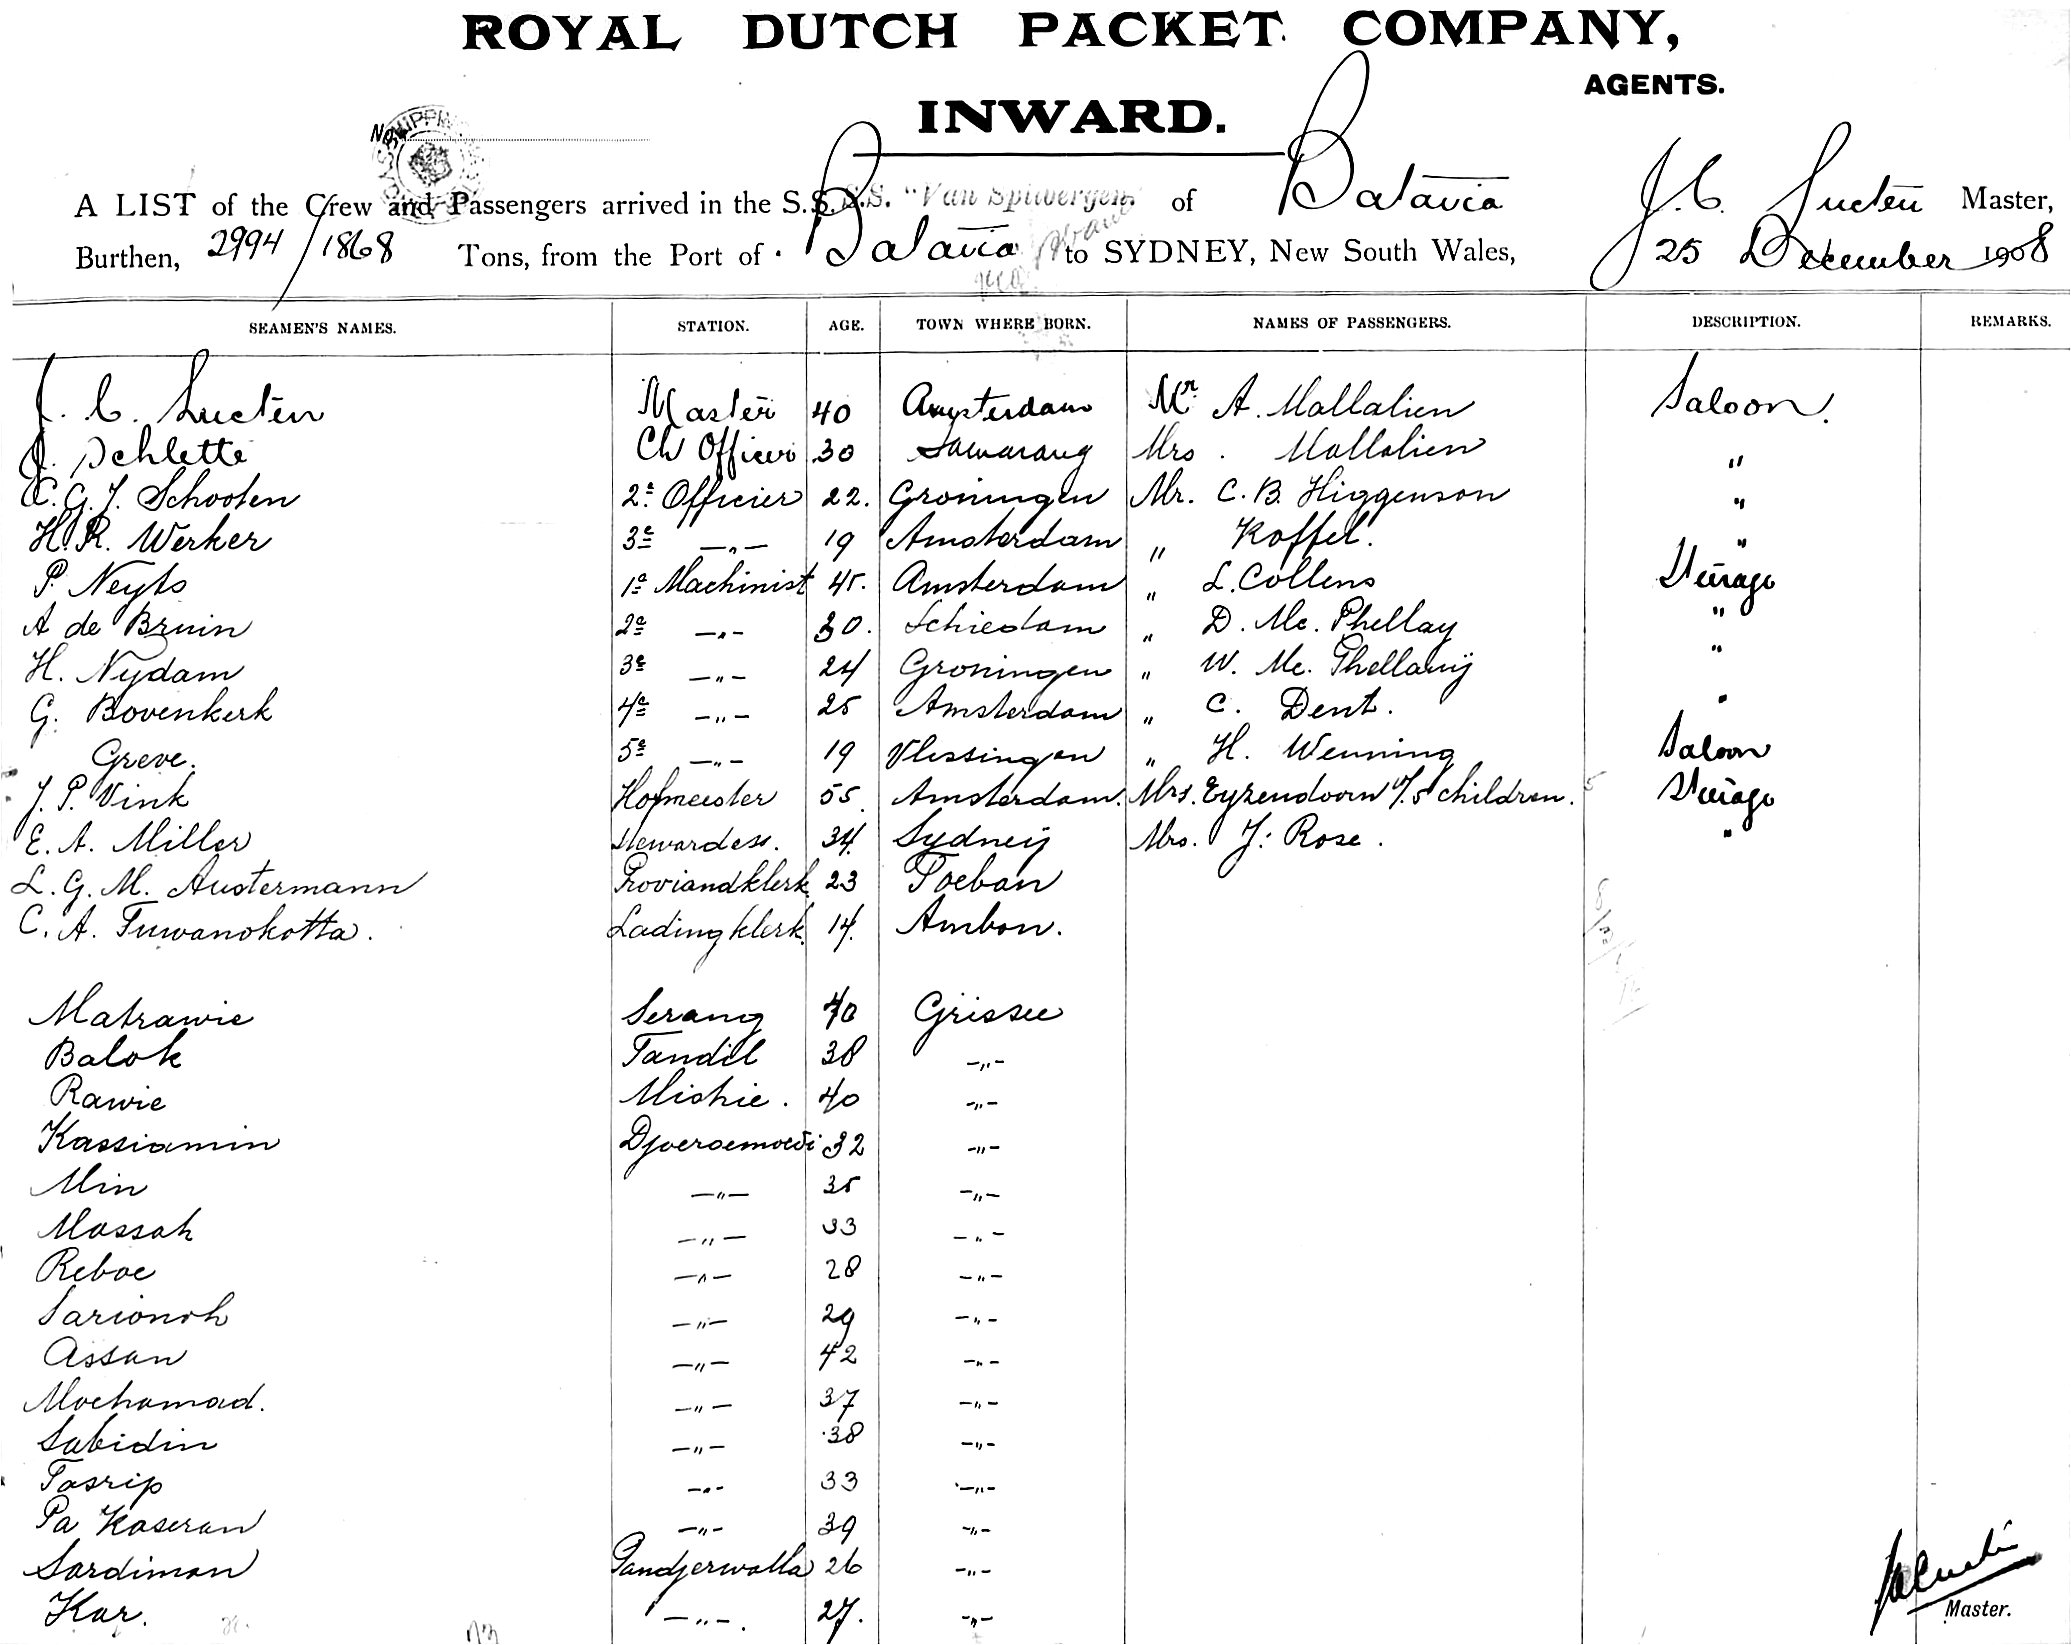 ROYAL DUTCH PACKET COMPANY,
AGENTS.
INWARD.
No
A LIST of the Crew and Passengers arrived in the S.S. S.S. "Van Spilbergen" of Batavia J. C. Lucten Master,
Burthen, 2994/1868 Tons, from the Port of Batavia to SYDNEY, New South Wales, 25 December 1908
SEAMEN'S NAMES. STATION. AGE. TOWN WHERE BORN. NAMES OF PASSENGERS. DESCRIPTION. REMARKS.
J. C. Lucten Master 40 Amsterdam Mr. A. Mallalien Saloon.
J. Schlette Ch Officier 30 Samarang Mrs. Mallalien "
C. G. J. Schooten 2e Officier 22. Groningen Mr. C. B. Higgenson "
H. R. Werker 3e —„— 19 Amsterdam „ Koffel. "
P. Neyts 1e Machinist 45. Amsterdam „ L. Collens Steerage
A de Bruin 2e —„— 30. Schiedam „ D. Mc. Phellay "
H. Nydam 3e —„— 24 Groningen „ W. Mc. Phellany "
G. Bovenkerk 4e —„— 25 Amsterdam „ C. Dent. "
Greve. 5e —„— 19 Vlissingen „ H. Wenning Saloon
J. P. Vink Hofmeester 55. Amsterdam. Mrs. Eyzendoorn & 5 children. Steerage
E. A. Miller Stewardess. 34. Sydney Mrs. J. Rose. "
L. G. M. Austermann Proviandklerk 23 Toeban
C. A. Tuwanokotta. Ladingklerk. 14. Ambon.
Matrawie Serang 40 Grissee
Balok Tandil 38 —„—
Rawie Miskie. 40 —„—
Kassiamin Djoeroemoedi 32 —„—
Min —„— 35 —„—
Massah —„— 33 —„—
Reboe —„— 28 —„—
Sarionoh —„— 29 —„—
Assan —„— 42 —„—
Mochamad. —„— 37 —„—
Sabidin —„— 38 —„—
Tasrip —„— 33 —„—
Pa Kaseran —„— 39 —„—
Sardiman Pandjerwalla 26 —„—
Kar. —„—. 27. —„—
Master.